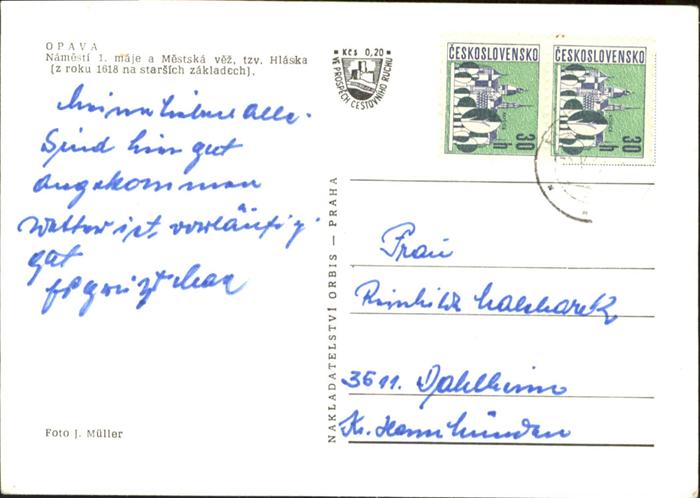 OPAVA
Náměstí 1. máje a Městská věž, tzv. Hláska
(z roku 1618 na starších základech).
Kčs 0,20
VE PROSPĚCH CESTOVNÍHO RUCHU
ČESKOSLOVENSKO
30 h
ČESKOSLOVENSKO
30 h
Meine lieben alle.
Sind hier gut
angekommen
Wetter ist vorläufig
gut
NAKLADATELSTVÍ ORBIS — PRAHA
Frau
3511. Dahlheim
Kr. Hann. Münden
Foto J. Müller